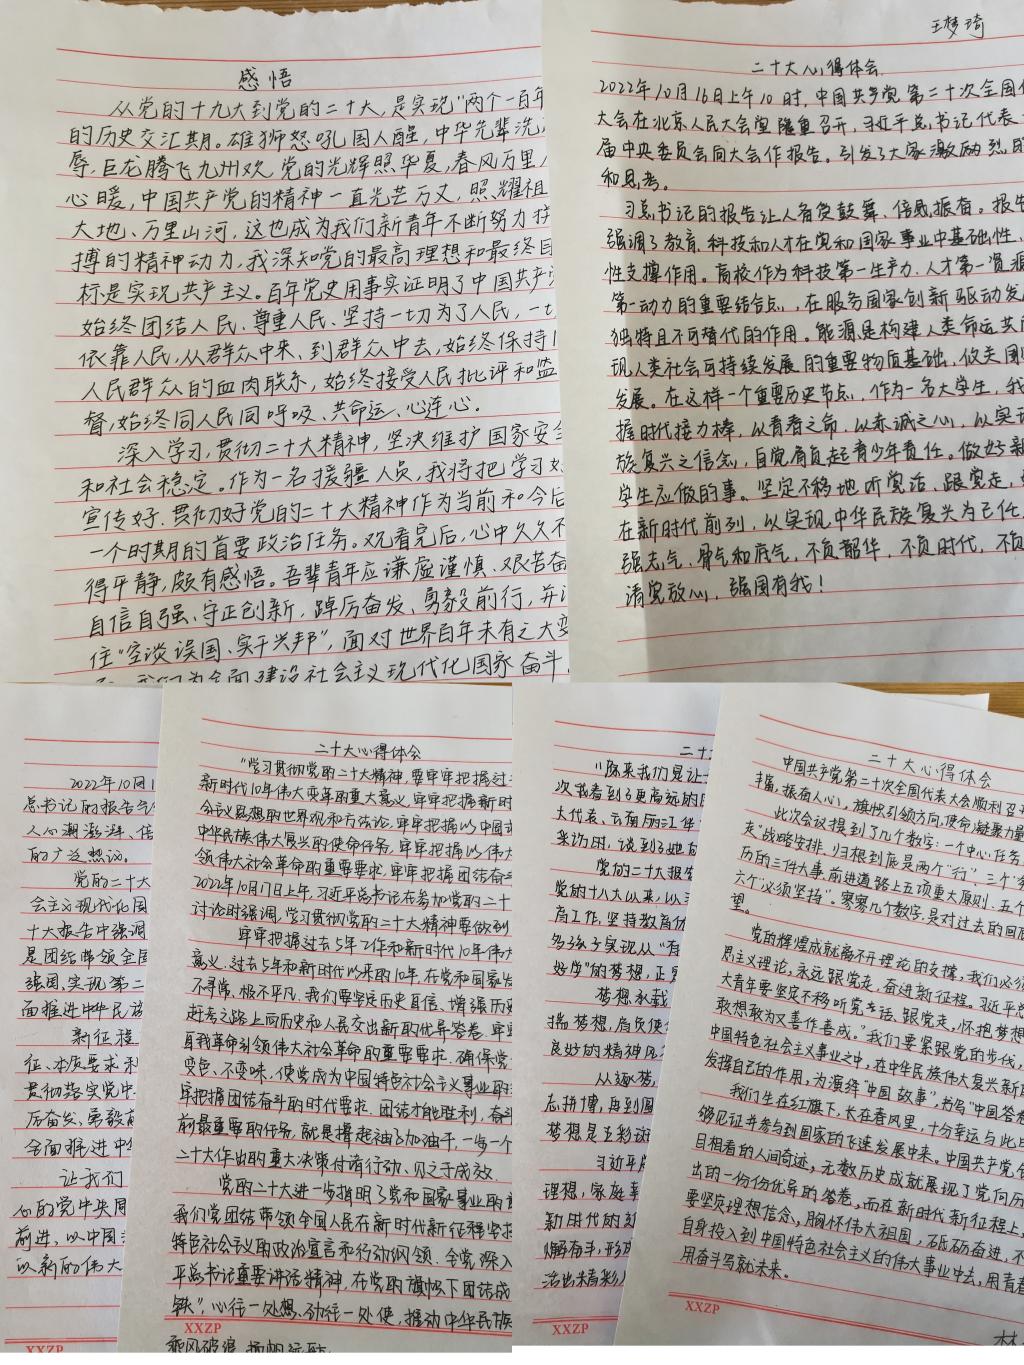 感悟
从党的十九大到党的二十大，是实现“两个一百年
的历史交汇期。雄狮怒吼国人醒，中华先辈洗
辱，巨龙腾飞九州欢。党的光辉照华夏，春风万里
心暖，中国共产党的精神一直光芒万丈，照耀祖
大地、万里山河，这也成为我们新青年不断努力拼
搏的精神动力。我深知党的最高理想和最终目
标是实现共产主义。百年党史用事实证明了中国共产
始终团结人民、尊重人民、坚持一切为了人民，一切
依靠人民，从群众中来、到群众中去，始终保持
人民群众的血肉联系，始终接受人民批评和监
督，始终同人民同呼吸、共命运、心连心。
深入学习，贯彻二十大精神，坚决维护国家安全
和社会稳定。作为一名援疆人员，我将把学习好
宣传好、贯彻好党的二十大精神作为当前和今后
一个时期的首要政治任务。观看完后，心中久久不
得平静，颇有感悟。吾辈青年应谦虚谨慎、艰苦奋
自信自强、守正创新，踔厉奋发、勇毅前行，并
住“空谈误国、实干兴邦”，面对世界百年未有之大变
我们为全面建设社会主义现代化国家奋斗
王梦琦
二十大心得体会
2022年10月16日上午10时，中国共产党第二十次全国
大会在北京人民大会堂隆重召开，习近平总书记代表
届中央委员会向大会作报告。引发了大家激励烈的
和思考。
习总书记的报告让人备受鼓舞、倍感振奋。报告
强调了教育、科技和人才在党和国家事业中基础性、
性支撑作用。高校作为科技第一生产力、人才第一资源
第一动力的重要结合点，在服务国家创新驱动发
独特且不可替代的作用。能源是构建人类命运共同
现人类社会可持续发展的重要物质基础，攸关国
发展。在这样一个重要历史节点，作为一名大学生，我
握时代接力棒，以青春之命，以赤诚之心，以实现
族复兴之信念，自觉肩负起青少年责任。做好新
学生应做的事。坚定不移地听党话、跟党走，
在新时代前列，以实现中华民族复兴为己任，
强志气、骨气和底气，不负韶华，不负时代，不负
请党放心，强国有我！
2022年10月1
总书记的报告
人心潮澎湃、倍
的广泛热议。
党的二十大
会主义现代化国
十大报告中强调
是团结带领全国
强国、实现第二
面推进中华民族
新征程
征、本质要求和
贯彻落实党中
厉奋发、勇毅前
全面推进中华
让我们
心的党中央周
前进，以中国
以新的伟大
XXZP
二十大心得体会
“学习贯彻党的二十大精神，要牢牢把握过
新时代10年伟大变革的重大意义，牢牢把握新时
会主义思想的世界观和方法论，牢牢把握以中国式
中华民族伟大复兴的使命任务，牢牢把握以伟大
领伟大社会革命的重要要求，牢牢把握团结奋斗
2022年10月17日上午，习近平总书记在参加党的二十
讨论时强调，学习贯彻党的二十大精神要做到
牢牢把握过去5年工作和新时代10年伟大
意义。过去5年和新时代以来的10年，在党和国家发
不寻常、极不平凡。我们要坚定历史自信、增强历史
赶考之路上向历史和人民交出新的优异答卷。牢牢
自我革命引领伟大社会革命的重要要求，确保党
变色、不变味，使党成为中国特色社会主义事业的
牢把握团结奋斗的时代要求，团结才能胜利，奋斗
前最重要的任务，就是撸起袖子加油干，一步一个
二十大作出的重大决策付诸行动、见之于成效。
党的二十大进一步指明了党和国家事业的
我们党团结带领全国人民在新时代新征程坚持
特色社会主义的政治宣言和行动纲领。全党深入
平总书记重要讲话精神，在党的旗帜下团结成
铁”，心往一处想、劲往一处使，推动中华民族
乘风破浪、扬帆远航
二十大
次我看到了更高远的
大代表、云南丽江华
采访时，谈到了她
党的二十大报告
党的十八大以来，以
育工作，坚持教育
多孩子实现从“有
好学”的梦想，正
梦想承载
揣梦想，肩负使
良好的精神风
从逐梦，
志拼搏，再到圆
梦想是五彩
习近平
理想，家庭
新时代的
懈奋斗，形
活出精彩人
XXZP
二十大心得体会
中国共产党第二十次全国代表大会顺利召
丰播，振奋人心，旗帜引领方向，使命凝聚力量
此次会议提到了几个数字：一个中心任务
走”战略安排，归根到底是两个“行”三个“务
历的三件大事，前进道路上五项重大原则，五个
六个“必须坚持”。寥寥几个数字，是对过去的回
望。
党的辉煌成就离不开理论的支撑，我们必须
思主义理论，永远跟党走，奋进新征程。习近平总
大青年要坚定不移听党话、跟党走，怀抱梦想
敢想敢为又善作善成。”我们要紧跟党的步伐，
中国特色社会主义事业之中，在中华民族伟大复兴新
发挥自己的作用，为演绎“中国故事”，书写“中国答卷
我们生在红旗下，长在春风里，十分幸运与此
够见证并参与到国家的飞速发展中来。中国共产党
目相看的人间奇迹，无数历史成就展现了党向历
出的一份份优异的答卷，而在新时代新征程上，
要坚定理想信念，胸怀伟大祖国，砥砺奋进，
自身投入到中国特色社会主义的伟大事业中去，用青春
用奋斗写就未来。
XXZP
林